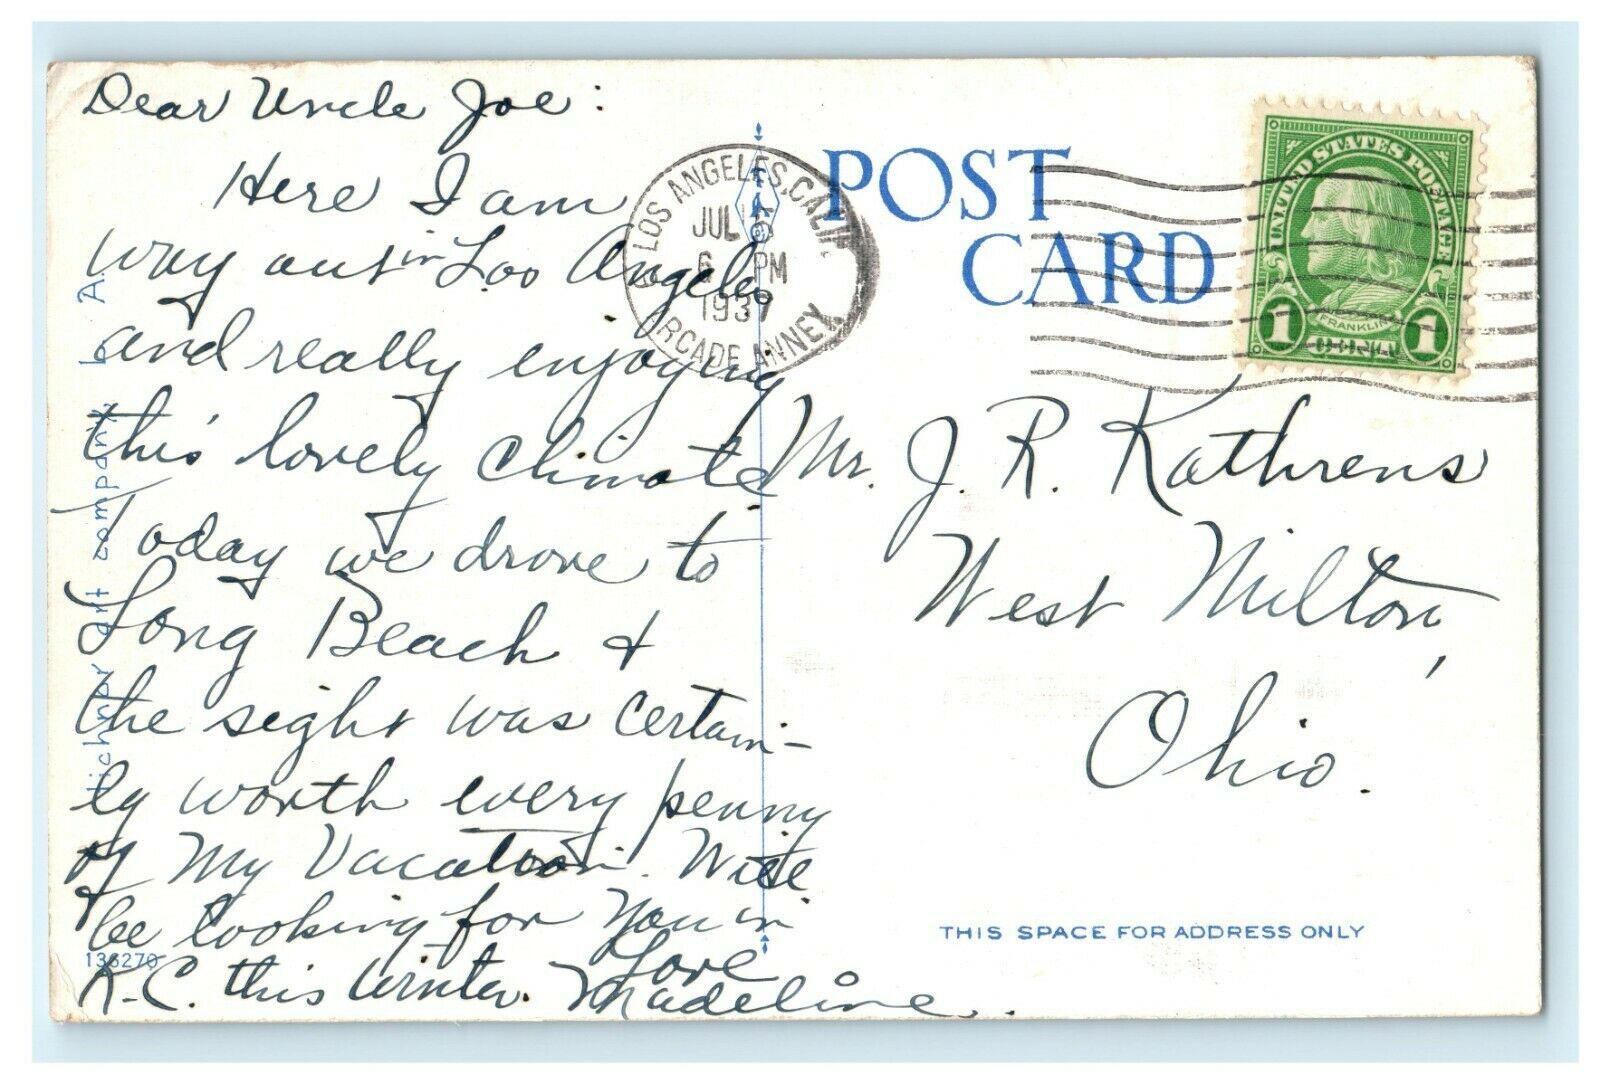 Dear Uncle Joe:
Here I am
way out in Los Angeles
and really enjoying
this lovely climate
Today we drove to
Long Beach &
the sight was certain-
ly worth every penny
of My Vacation. Will
be looking for You in
K-C. this Winter. Love
Madeline.
136270
tichnor art company, L. A.
LOS ANGELES, CALIF.
JUL
6 PM
1937
ARCADE ANNEX
POST
CARD
UNITED STATES POSTAGE
FRANKLIN
1 1
Mr. J. R. Kathrens
West Milton,
Ohio.
THIS SPACE FOR ADDRESS ONLY